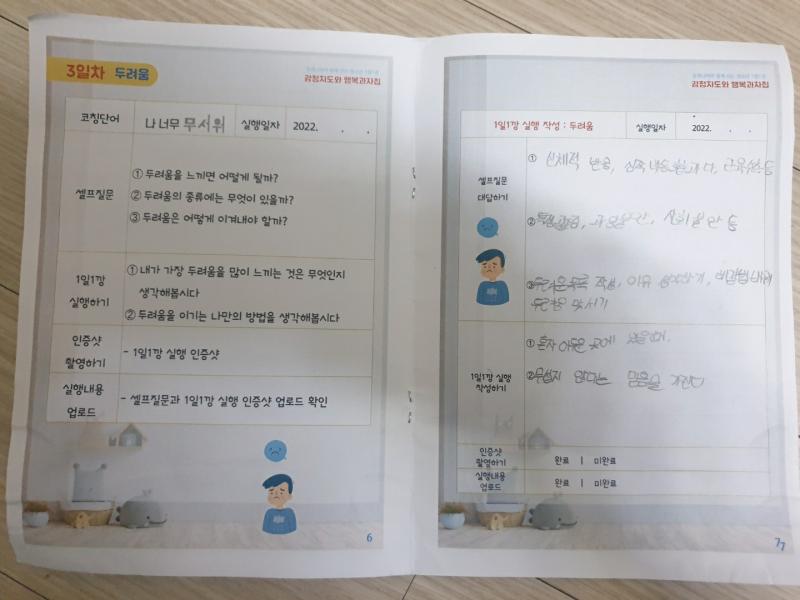 3일차 두려움
감정지도와 행복과자집
코칭단어
나 너무 무서워
실행일자
2022. . .
셀프질문
① 두려움을 느끼면 어떻게 될까?
② 두려움의 종류에는 무엇이 있을까?
③ 두려움은 어떻게 이겨내야 할까?
1일1깡
실행하기
① 내가 가장 두려움을 많이 느끼는 것은 무엇인지
생각해봅시다
② 두려움을 이기는 나만의 방법을 생각해봅시다
인증샷
촬영하기
- 1일1깡 실행 인증샷
실행내용
업로드
- 셀프질문과 1일1깡 실행 인증샷 업로드 확인
6
감정지도와 행복과자집
1일1깡 실행 작성 : 두려움
실행일자
2022. . .
셀프질문
대답하기
① 신체적 반응,
② 불안, 사회불안 등
③ 작성, 이유
1일1깡 실행
작성하기
① 혼자 어두운 곳에 있을때.
② 무섭지 않다는 믿음을 가진다
인증샷
촬영하기
완료 | 미완료
실행내용
업로드
완료 | 미완료
7